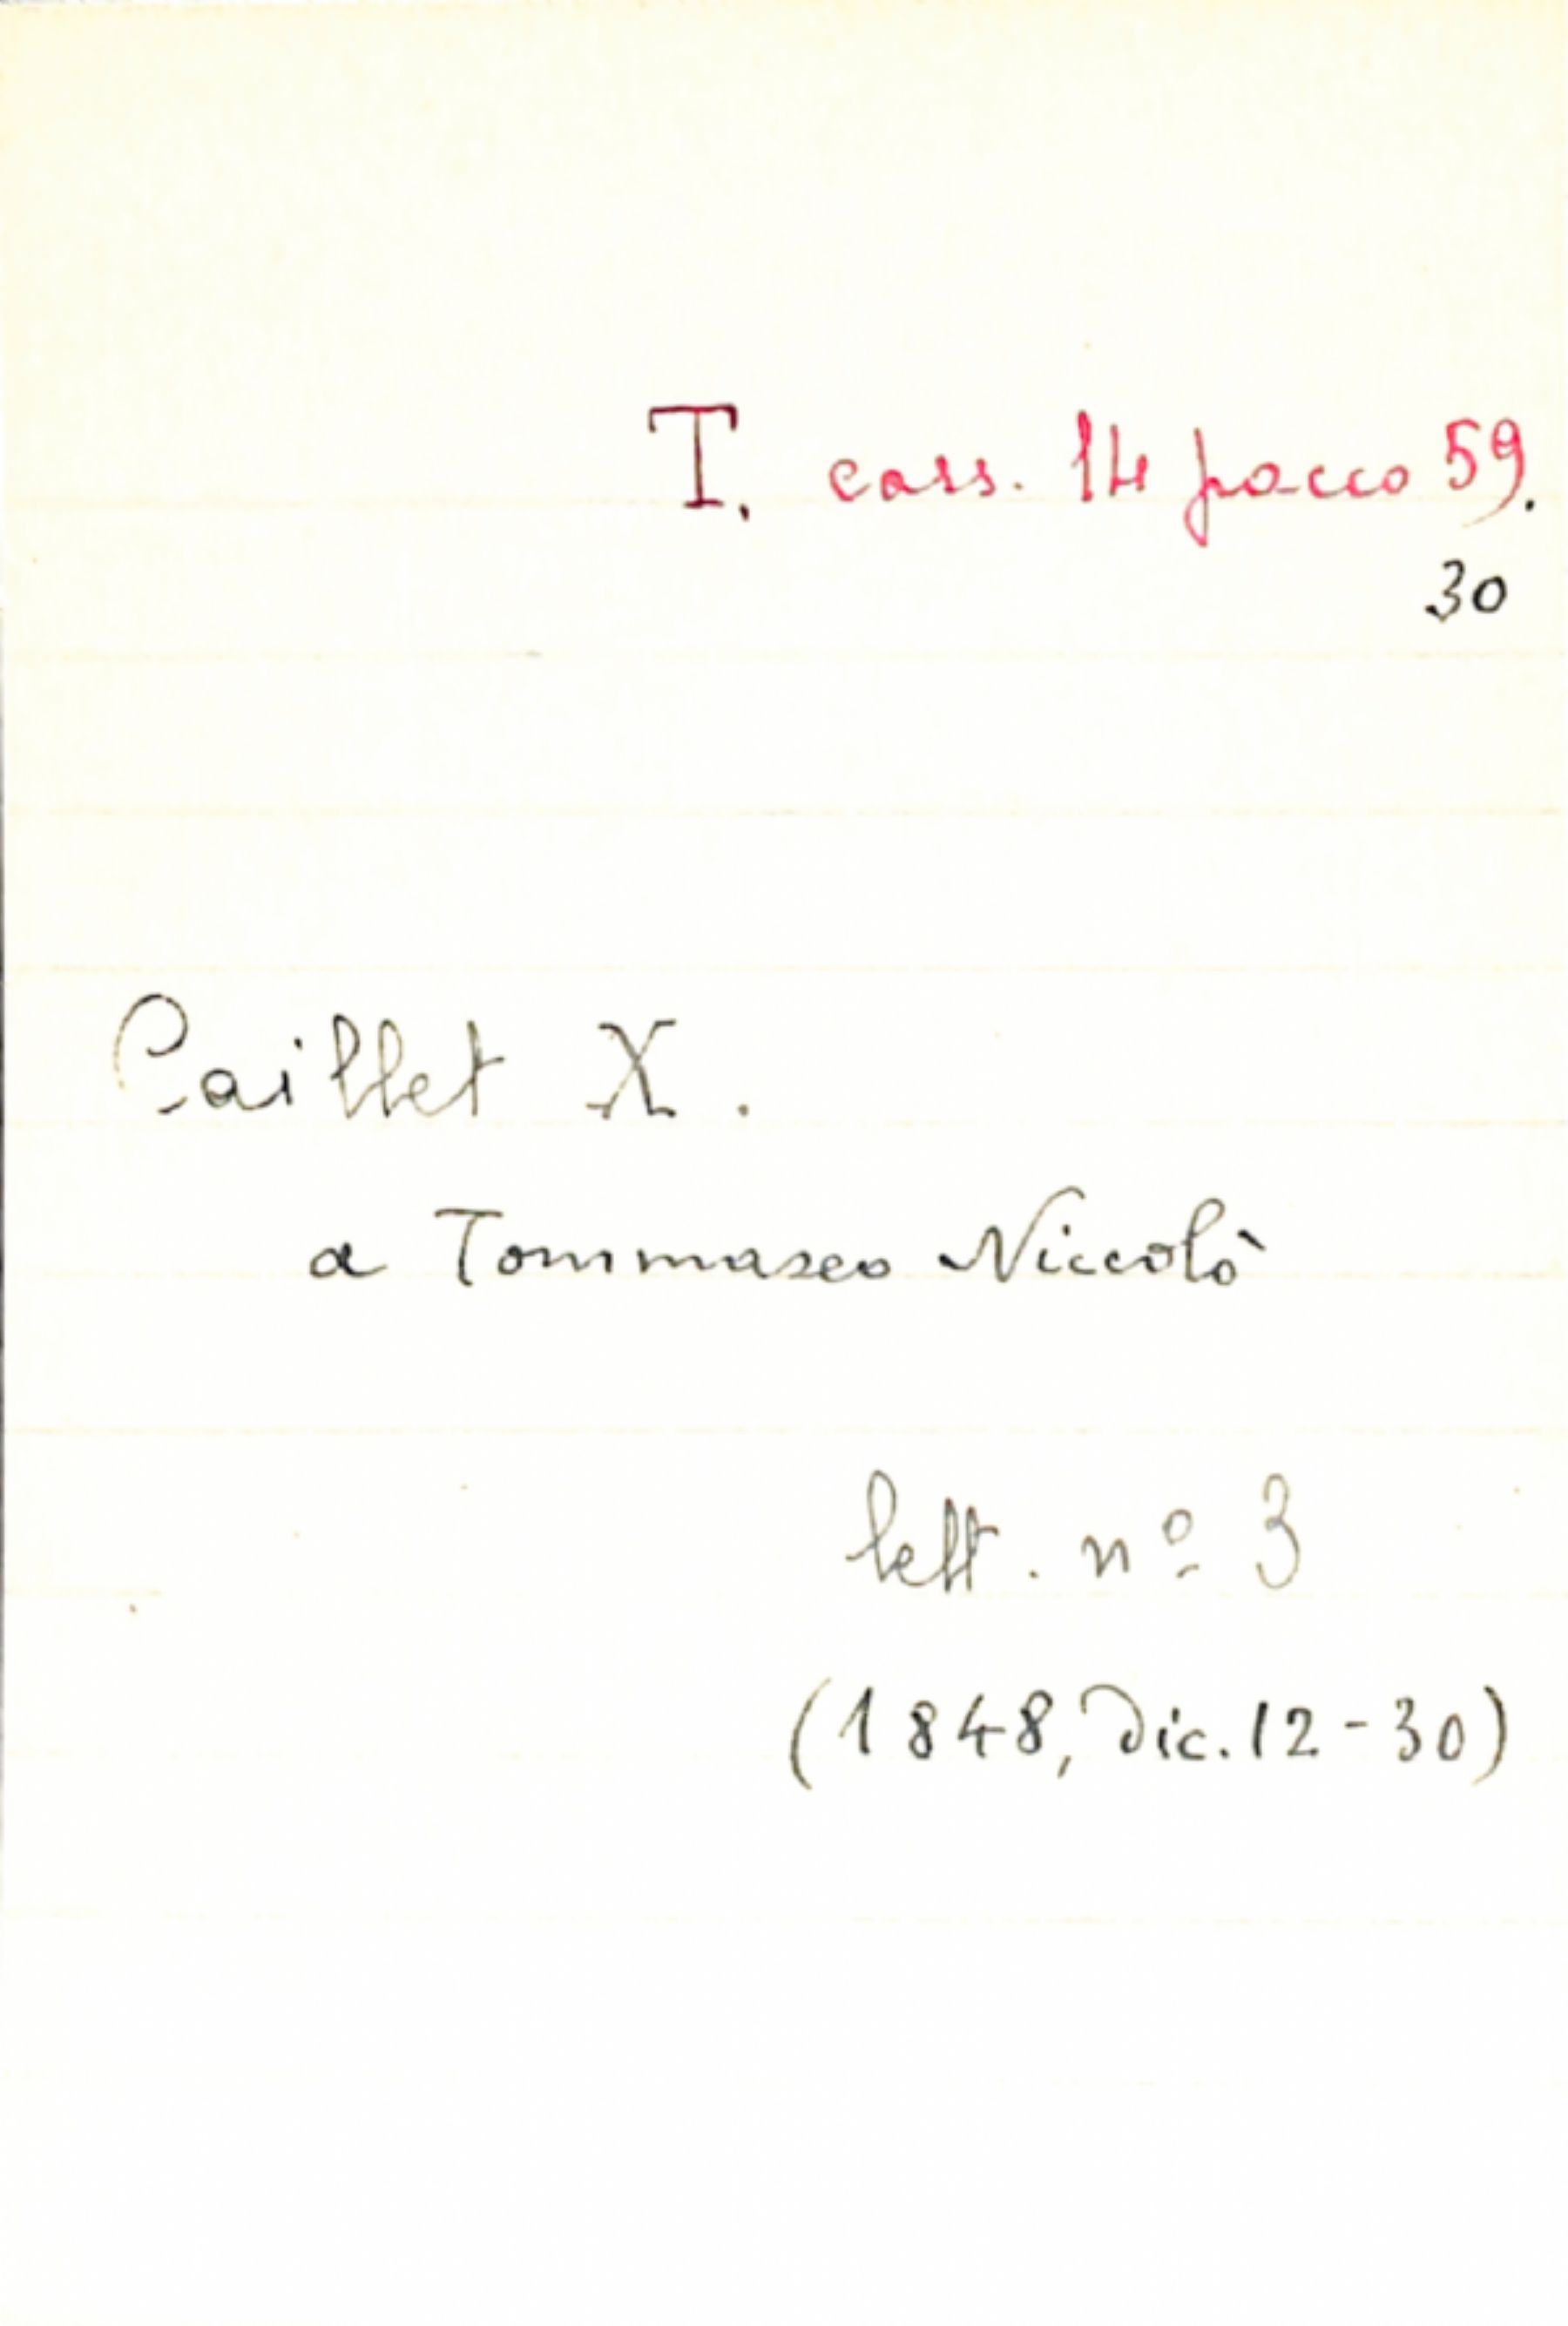 T. cass. 14 pacco 59.
30
Caillet X.
a Tommaseo Niccolò
lett. nº 3
(1848, dic. 12-30)